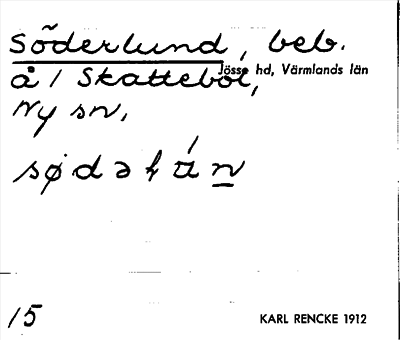 Söderlund, beb.
Jösse hd, Värmlands län
å 1 Skatteböl,
Ny sn,
15
KARL RENCKE 1912